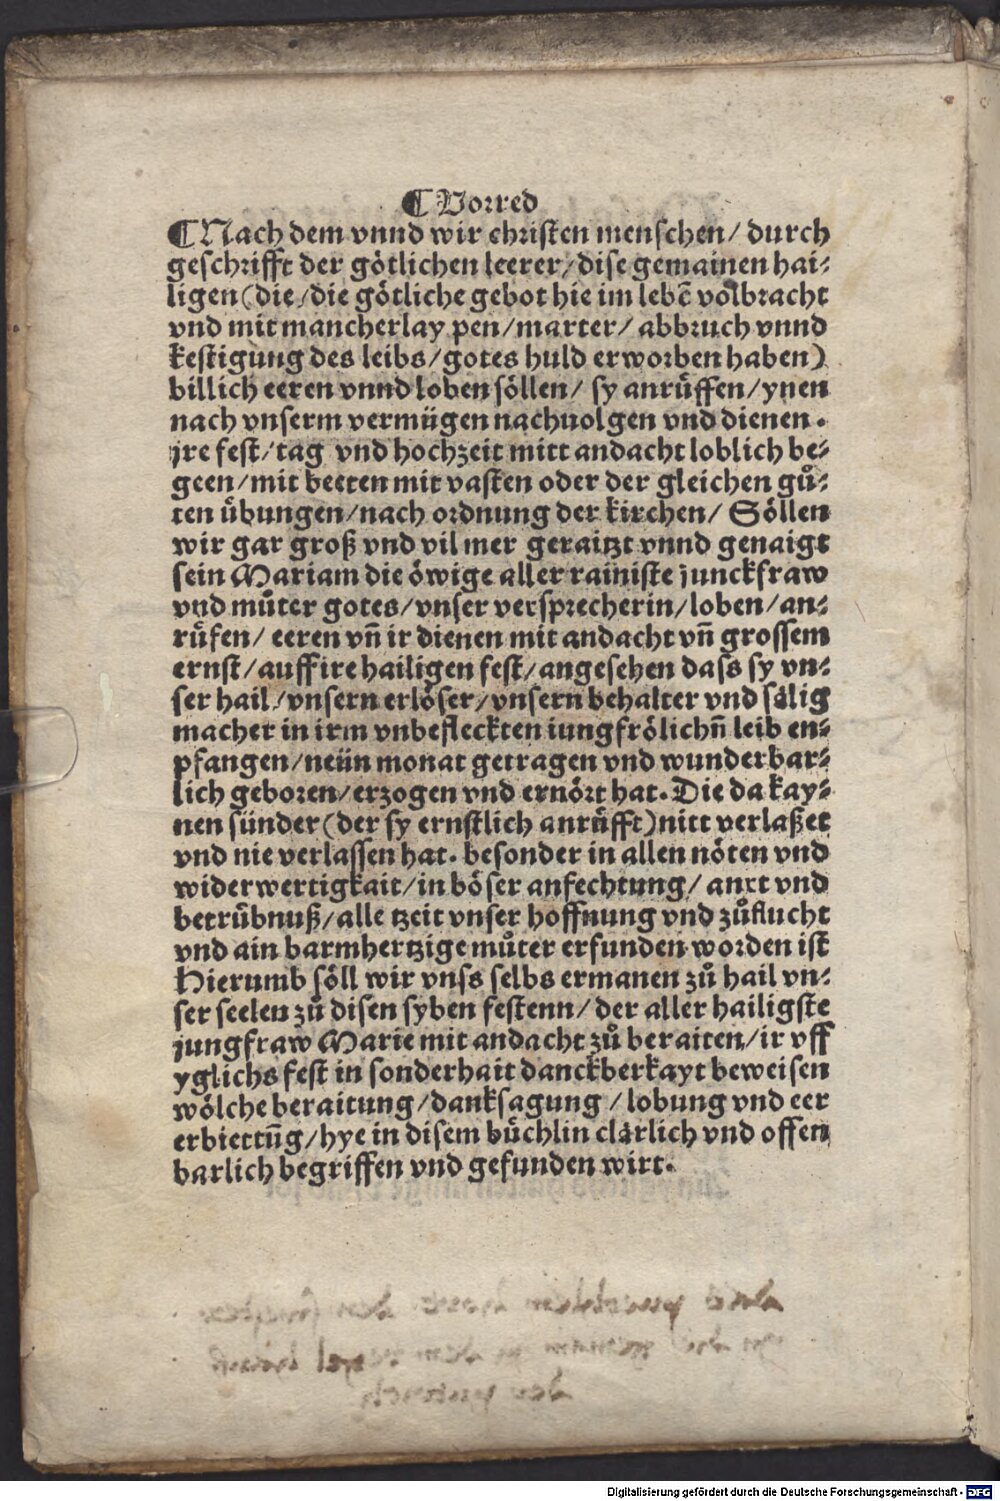 ¶ Vorred
¶ Nach dem vnnd wir christen menschen/ durch
geschrifft der götlichen leerer/ dise gemainen hai⸗
ligen (die/ die götliche gebot hie im lebē volbracht
vnd mit mancherlay pen/ marter/ abbruch vnnd
kestigung des leibs/ gotes huld erworben haben)
billich eeren vnnd loben söllen/ sy anrůffen/ ynen
nach vnserm vermügen nachuolgen vnd dienen.
jre fest/ tag vnd hochzeit mitt andacht loblich be⸗
geen/ mit beeten mit vasten oder der gleichen gů⸗
ten übungen/ nach ordnung der kirchen/ Söllen
wir gar groß vnd vil mer geraitzt vnnd genaigt
sein Mariam die öwige aller rainiste junckfraw
vnd můter gotes/ vnser versprecherin/ loben/ an⸗
rüfen/ eeren vñ ir dienen mit andacht vñ grossem
ernst/ auff ire hailigen fest/ angesehen dass sy vn⸗
ser hail/ vnsern erlöser/ vnsern behalter vnd sälig
macher in irm vnbefleckten iungfrölichñ leib en⸗
pfangen/ neün monat getragen vnd wunderbar⸗
lich geboren/ erzogen vnd ernört hat. Die da kay⸗
nen sünder (der sy ernstlich anrůfft) nitt verlaßet
vnd nie verlassen hat. besonder in allen nöten vnd
widerwertigkait/ in böser anfechtung/ anxt vnd
betrübnuß/ alle tzeit vnser hoffnung vnd zůflucht
vnd ain barmhertzige můter erfunden worden ist
Hierumb söll wir vnss selbs ermanen zů hail vn⸗
ser seelen zů disen syben festenn/ der aller hailigste
jungfraw Marie mit andacht zů beraiten/ ir vff
yglichs fest in sonderhait danckberkayt beweisen
wölche beraitung/ danksagung / lobung vnd eer
erbiettūg/ hye in disem büchlin clärlich vnd offen
barlich begriffen vnd gefunden wirt.
Digitalisierung gefördert durch die Deutsche Forschungsgemeinschaft - DFG